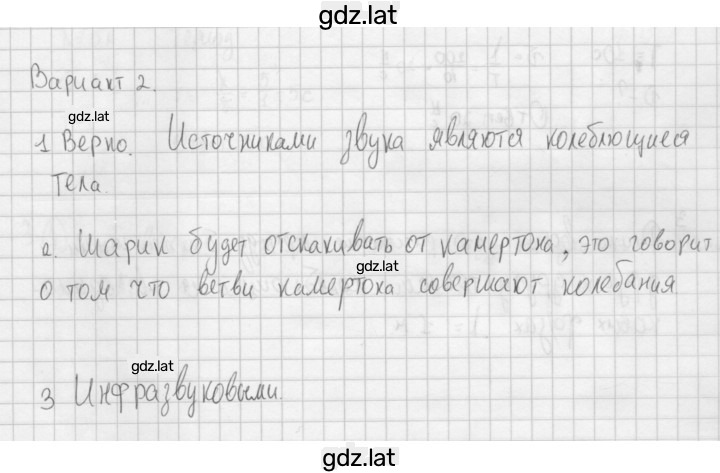 gdz.lat
Вариант 2.
gdz.lat
1 Верно. Источниками звука являются колеблющиеся
тела.
2. Шарик будет отскакивать от камертона, это говорит
gdz.lat
о том что ветви камертона совершают колебания
gdz.lat
3 Инфразвуковыми.
gdz.lat